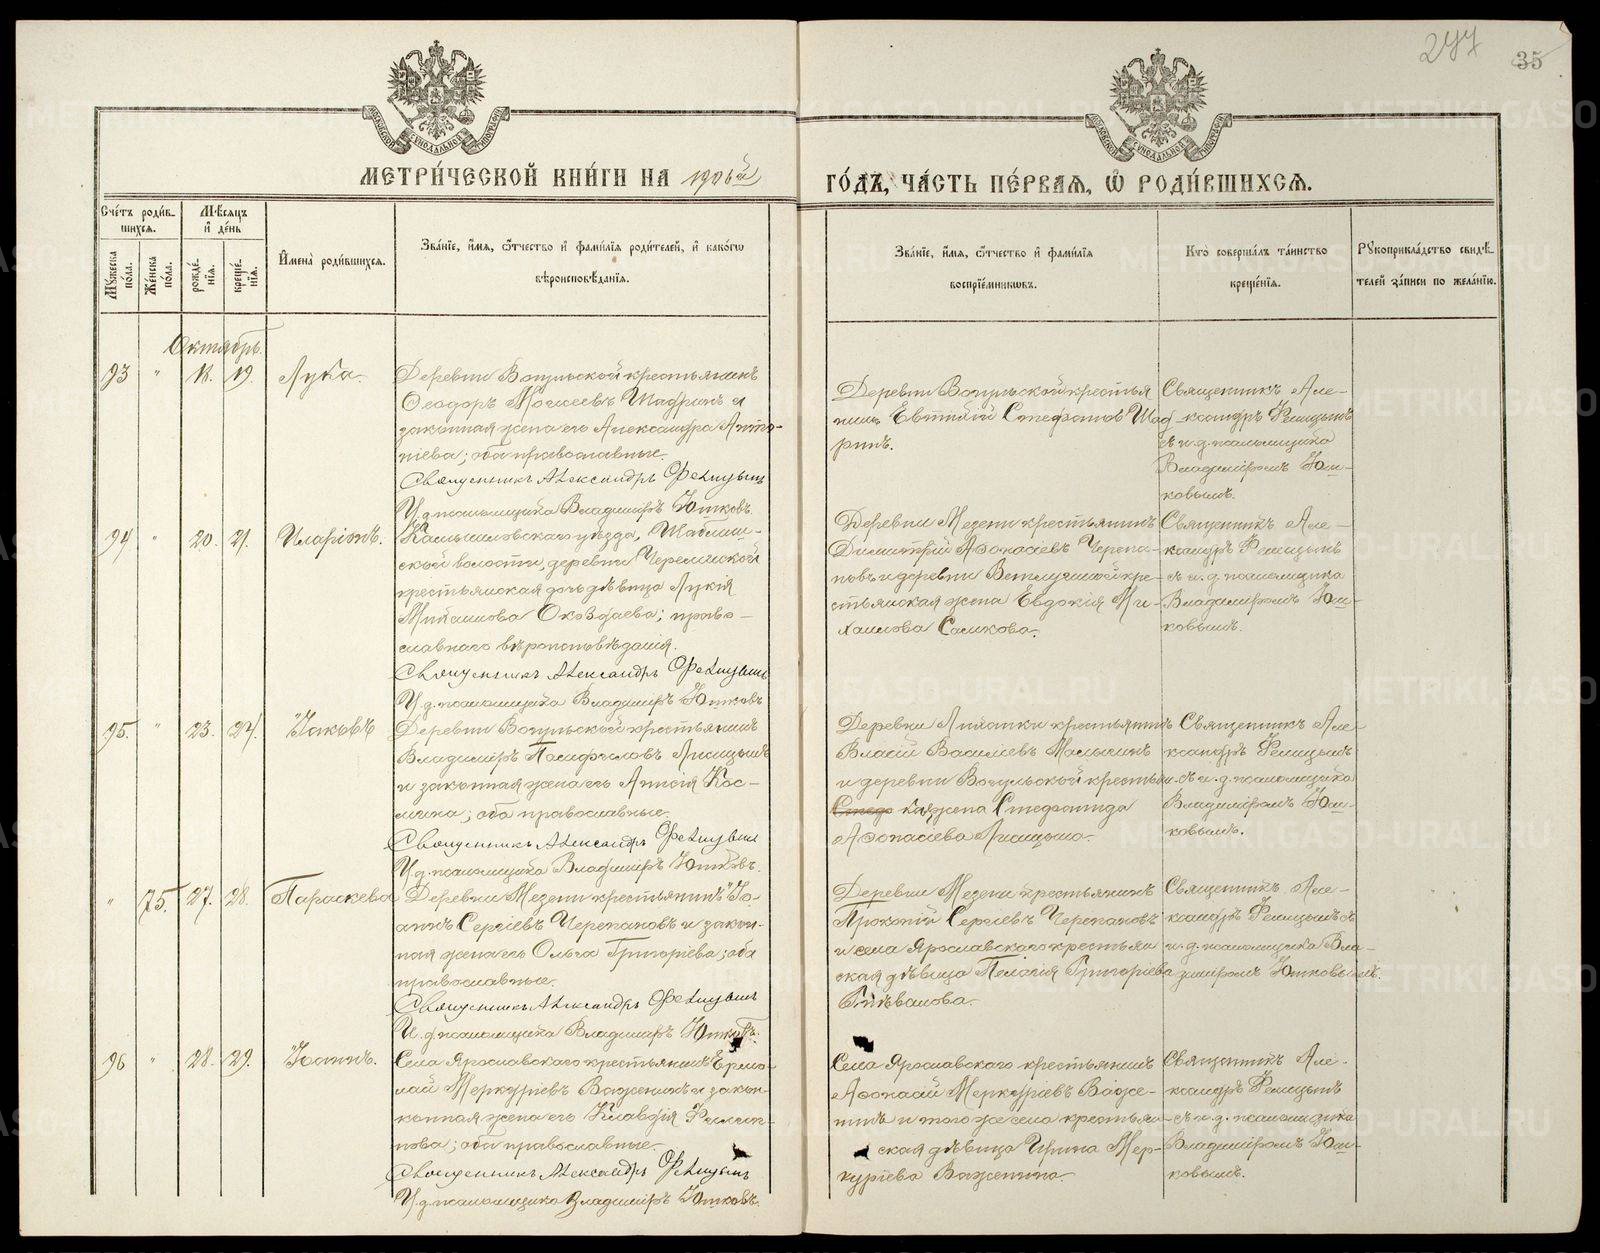 277
35
МЕТРИ́ЧЕСКОЙ КНИ́ГИ НА 1906й
ГО́ДЪ, ЧА́СТЬ ПЕ́РВАѦ, Ѽ РОДИ́ВШИХСѦ.
Сче́тъ роди́в-
шихсѧ.
Мꙋжеска по́ла.
Же́нска по́ла.
Мѣ́сѧцъ и҆ де́нь
рожде́нїѧ.
креще́нїѧ.
И҆мена̀ роди́вшихсѧ.
Зва́нїе, и҆́мѧ, ѻ҆́тчество и҆ фами́лїѧ роди́телей, и҆ како́гѡ
вѣроисповѣ́данїѧ.
Зва́нїе, и҆́мѧ, ѻ҆́тчество и҆ фами́лїѧ
воспрїе́мникѡвъ.
Кто̀ соверша́лъ та́инство
креще́нїѧ.
Рꙋкоприкла́дство свидѣ́-
телей за́писи по жела́нїю.
Октябрь.
93 " 18. 19. Лука.
Деревни Вогульской крестьянинъ
Ѳеодоръ Моисеевъ Шадринъ и
законная жена его Александра Анто-
ніева; оба православные.
Священникъ Александръ Фелицынъ
И.д.псаломщика Владиміръ Юшковъ.
Деревни Вогульской крестья
нинъ Евѳимій Стефановъ Шад-
ринъ.
Священникъ Але-
ксандръ Фелицынъ
съ и.д. псаломщика
Владиміромъ Юш-
ковымъ.
94 " 20. 21. Иларіонъ.
Камышловскаго уѣзда,
ской волости, деревни
крестьянская дочь дѣвица Лукія
православ-
славнаго вѣроисповѣданія.
Священникъ Александръ Фелицынъ
И.д.псаломщика Владиміръ Юшковъ
Деревни Мезени крестьянинъ
Димитрій Аѳонасіевъ Черепа-
новъ и деревни кре-
стьянская жена Евдокія Ми-
хаилова
Священникъ Але-
ксандръ Фелицынъ
съ и.д. псаломщика
Владиміромъ Юш-
ковымъ.
95. " 23. 24. Іаковъ
Деревни Вогульской крестьянинъ
Владиміръ Лисицынъ
и законная жена его Анисія Кос-
мина; оба православные.
Священникъ Александръ Фелицынъ
И.д.псаломщика Владиміръ Юшковъ.
Деревни крестьянинъ
Власій Василіевъ
и деревни Вогульской крестьян-
ская жена Стефанида
Аѳонасіева Лисицына.
Священникъ Але-
ксандръ Фелицынъ
съ и.д. псаломщика
Владиміромъ Юш-
ковымъ.
" 75. 27. 28. Параскева
Деревни Мезени крестьянинъ Іо-
аннъ Сергіевъ Черепановъ и закон-
ная жена его Ольга Григоріева; оба
православные.
Священникъ Александръ Фелицынъ
И.д.псаломщика Владиміръ Юшковъ.
Деревни Мезени крестьянинъ
Прокопій Сергіевъ Черепановъ
и села Ярославскаго крестьян
ская дѣвица Пелагія Григоріева
Священникъ Але-
ксандръ Фелицынъ съ
и.д. псаломщика Вла-
диміромъ Юшковымъ.
96 " 28. 29. Іоаннъ.
Села Ярославскаго крестьянинъ Ермо-
лай Меркуріевъ Важенинъ и закон-
конная жена его Клавдія Филип-
пова; оба православные.
Священникъ Александръ Фелицынъ
И.д.псаломщика Владиміръ Юшковъ.
Села Ярославскаго крестьянинъ
Аѳонасій Меркуріевъ Важе-
нинъ и того же села крестьян-
ская дѣвица Ирина Мер-
куріева Важенина.
Священникъ Але-
ксандръ Фелицынъ
съ и.д. псаломщика
Владиміромъ Юш-
ковымъ.
METRIKI.GASO-URAL.RU